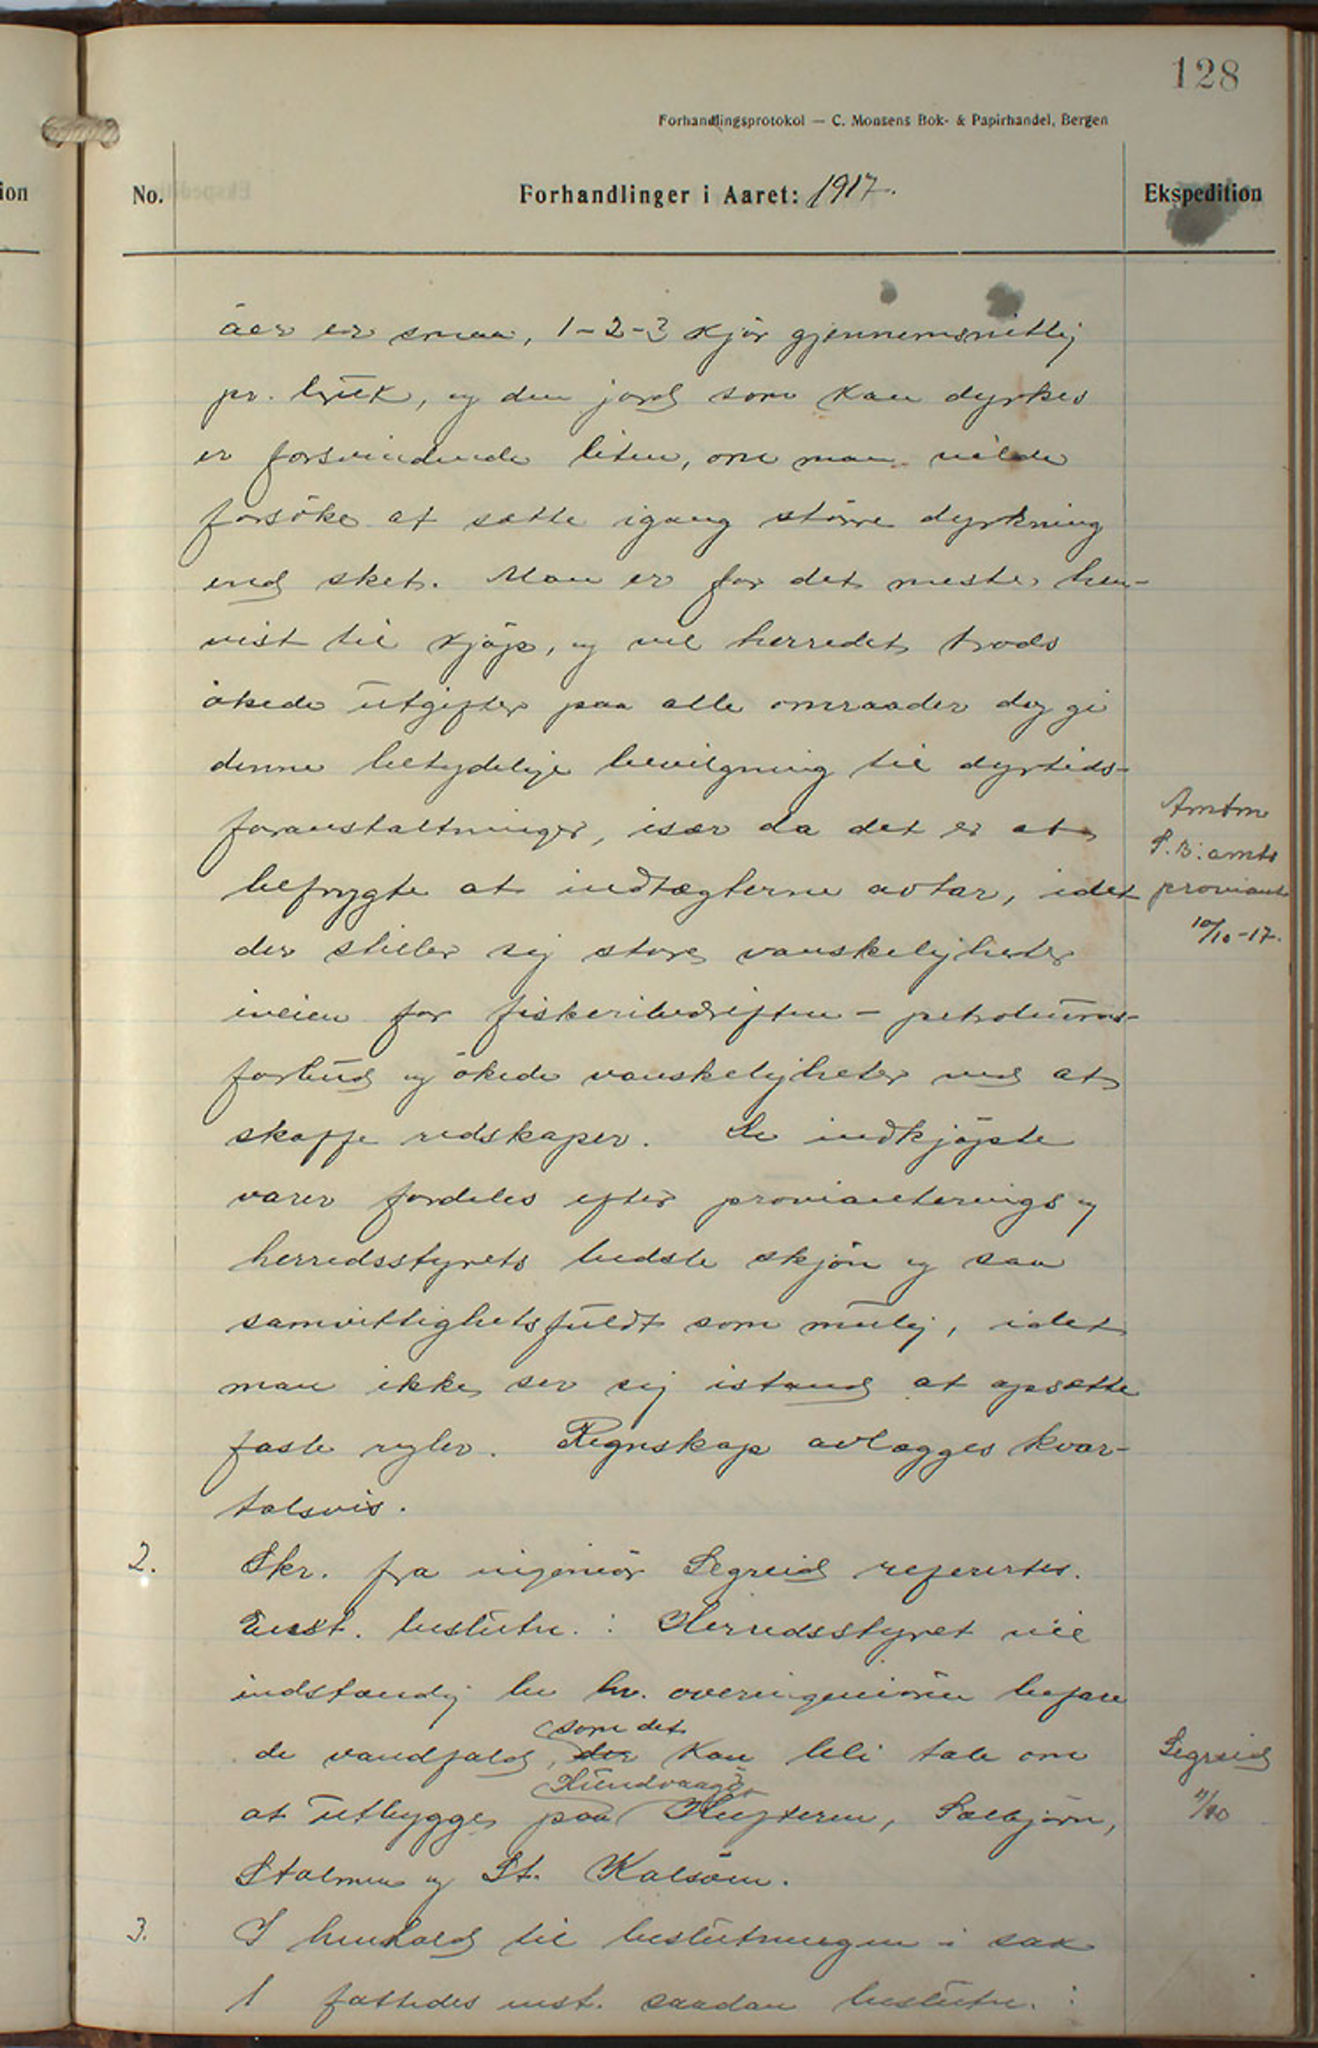 128
Forhandlingsprotokol — C. Monsens Bok- & Papirhandel, Bergen
ion
No.
Forhandlinger i Aaret: 1917.
Ekspedition
åer er smaa, 1-2-3 kjör gjennemsnitlig
pr. bruk, og den jord som kan dyrkes
er forsvindende liten, om man vilde
forsöke at sætte igang större dyrkning
end sket. Man er for det meste hen-
vist til kjöp, og vil herredet trods
ökede utgifter paa alle omraader dog gi
denne betydelige bevilgning til dyrtids-
foranstaltninger, især da det er at
befrygte at indtægterne avtar, idet
der stiller sig store vanskeligheter
iveien for fiskeribedriften - petroleums-
forbud og ökede vanskeligheter ved at
skaffe redskaper. De indkjöpte
varer fordeles efter provianterings og
herredsstyrets bedste skjön og saa
samvittighetsfuldt som mulig, idet
man ikke ser sig istand at opsætte
faste regler. Regnskap avlægges kvar-
talsvis.
Amtm
S.B. amts
proviant
10/10-17.
2. Skr. fra ingeniör Segreid refertes.
Enst. beslutn.: Herredsstyret vil
indstændig be hr. overingeniören befare
de vandfald, som det der kan bli tale om
at utbygge, paa Hundvaagö Huftern, Selbjörn,
Stolmen og St. Kalsöen.
Segreid
11/10
3. I henhold til beslutningen i sak
1 fattedes enst. saadan beslutn.: